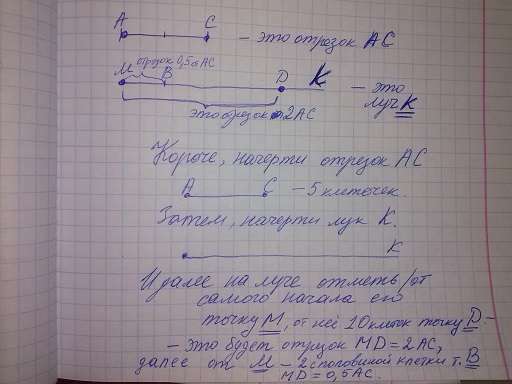 A C
- это отрезок AC
M отрезок 0,5 AC
B D K - это
луч K
это отрезок 2AC
Короче, начерти отрезок AC
A C - 5 клеточек.
Затем, начерти луч K.
K
И далее на луче отметь/от
самого начала его
точку M, от неё 10 клеток точку D -
- это будет отрезок MD = 2AC,
далее от M - 2 с половиной клетки т. B
MD = 0,5AC.